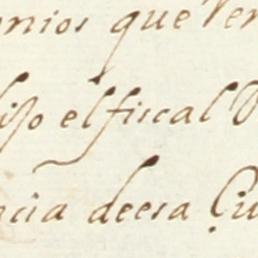 nios que
hizo el fiscal
ncia deesa Ciu